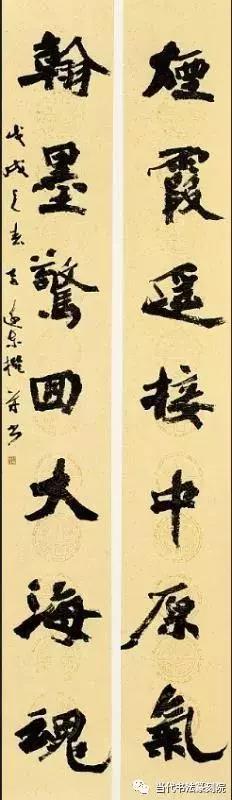 煙霞遥接中原氣
翰墨驚囬大海魂
戊戌之春撰并书
当代书法篆刻院